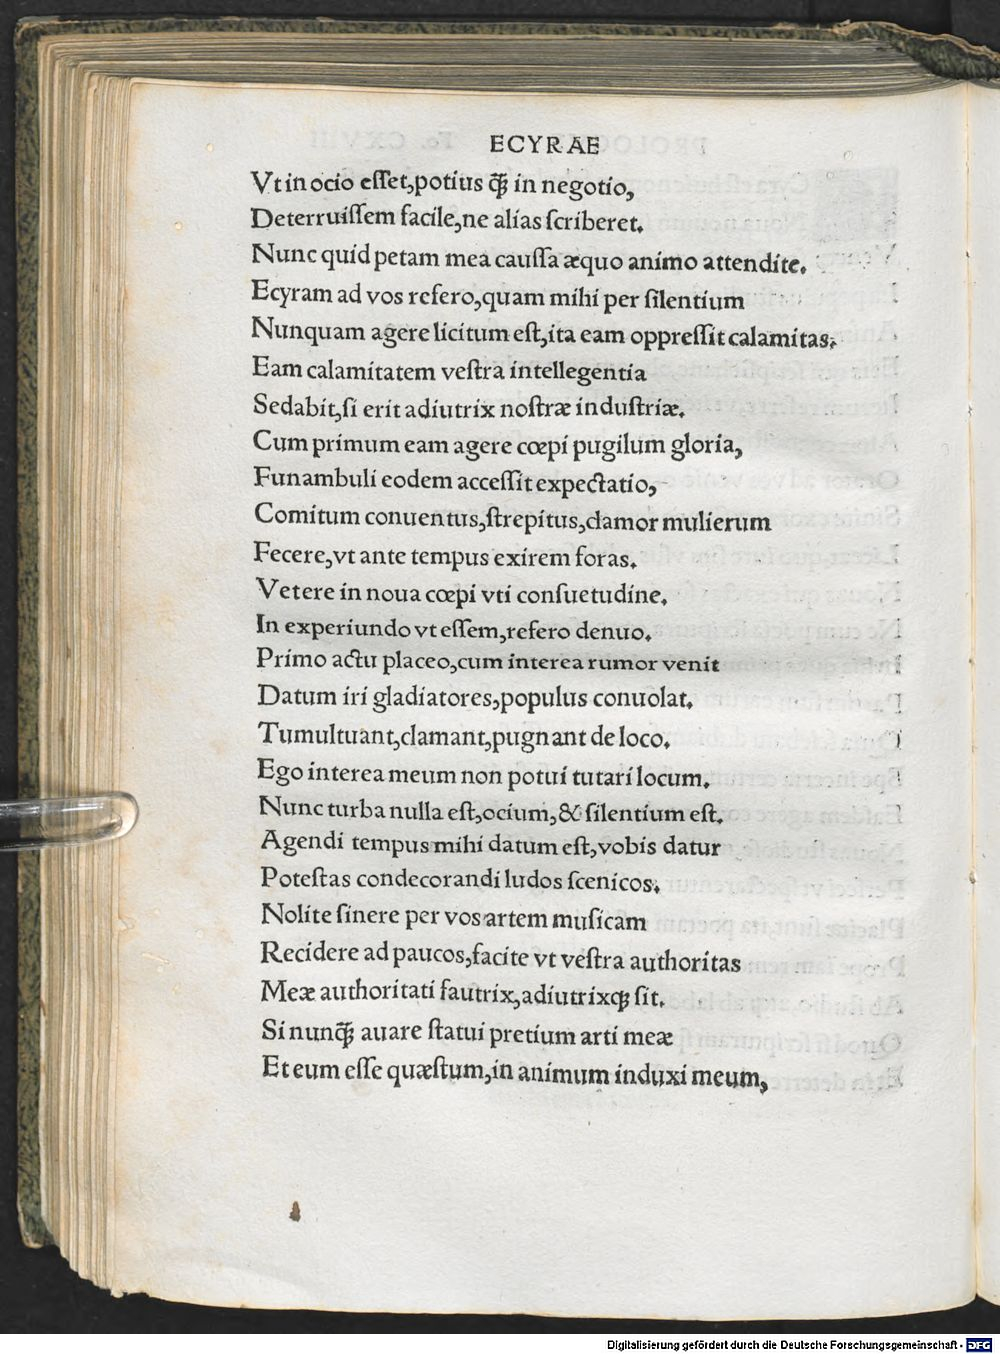 ECYRAE
Vt in ocio eſſet, potius q̃ in negotio,
Deterruiſſem facile, ne alias ſcriberet.
Nunc quid petam mea cauſſa æquo animo attendite.
Ecyram ad vos refero, quam mihi per ſilentium
Nunquam agere licitum eſt, ita eam oppreſſit calamitas.
Eam calamitatem veſtra intellegentia
Sedabit, ſi erit adiutrix noſtræ induſtriæ.
Cum primum eam agere cœpi pugilum gloria,
Funambuli eodem acceſſit expectatio,
Comitum conuentus, ſtrepitus, clamor mulierum
Fecere, vt ante tempus exirem foras.
Vetere in noua cœpi vti conſuetudine.
In experiundo vt eſſem, refero denuo.
Primo actu placeo, cum interea rumor venit
Datum iri gladiatores, populus conuolat.
Tumultuant, clamant, pugnant de loco.
Ego interea meum non potui tutari locum.
Nunc turba nulla eſt, ocium, & ſilentium eſt.
Agendi tempus mihi datum eſt, vobis datur
Poteſtas condecorandi ludos ſcenicos.
Nolite ſinere per vos artem muſicam
Recidere ad paucos, facite vt veſtra authoritas
Meæ authoritati fautrix, adiutrixq; ſit.
Si nunq̃ auare ſtatui pretium arti meæ
Et eum eſſe quæſtum, in animum induxi meum,
Digitalisierung gefördert durch die Deutsche Forschungsgemeinschaft - DFG